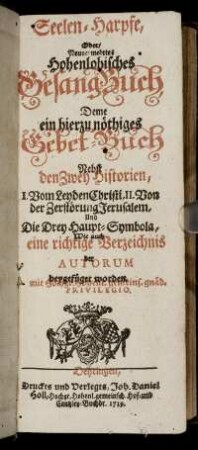 Seelen-Harpfe,
Oder/
Neuvermehrtes
Hohenlohisches
Gesang-Buch
Deme
ein hierzu nöthiges
Gebet-Buch
Nebst
den Zwey Historien,
I. Vom Leyden Christi. II. Von
der Zerstörung Jerusalem,
Und
Die Drey Haupt-Symbola,
Wie auch
eine richtige Verzeichnis
der
AUTORUM
beygefüget worden.
mit gnäd.
PRIVILEGIO.
Oehringen,
Druckts und Verlegts, Joh. Daniel
Holl, Hochgr. Hohenl. gemeinsch. Hof- und
Cantzley-Buchdr.